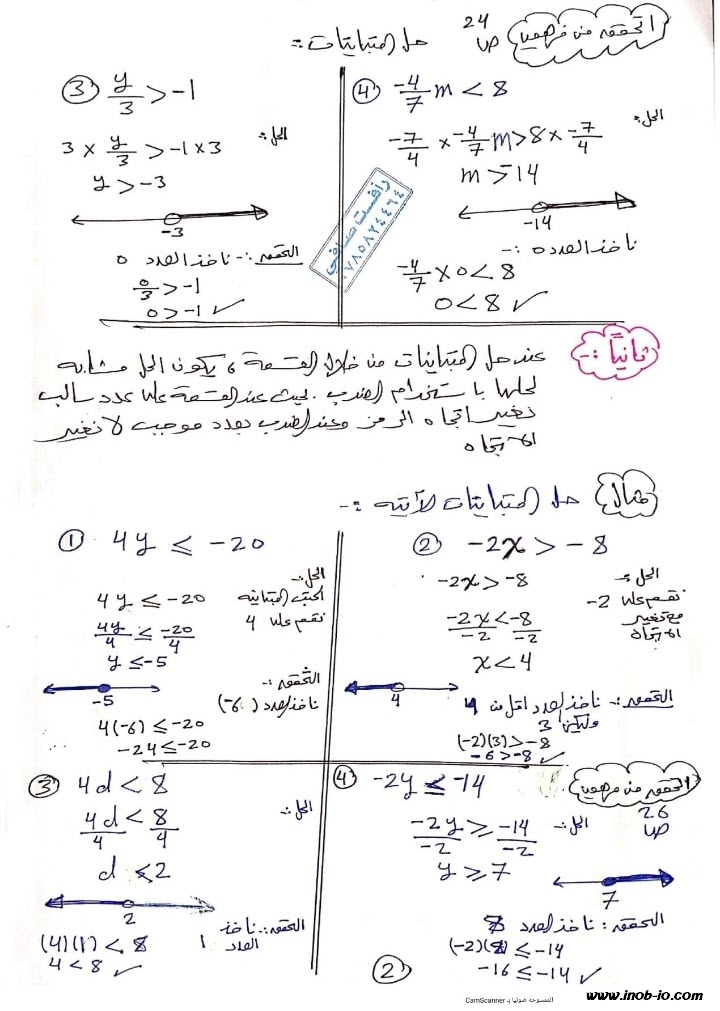 أتحقق من فهمي ص 24 حل المتباينات :-
3 y/3 > -1
الحل:-
3 × y/3 > -1 × 3
y > -3
-3
التحقق :- نأخذ العدد 0
0/3 > -1
0 > -1 ✓
4 -4/7 m < 8
الحل:-
-7/4 × -4/7 m > 8 × -7/4
m > -14
-14
نأخذ العدد 0 :-
-4/7 × 0 < 8
0 < 8 ✓
رأفت صافي
ثانياً :-
عند حل المتباينات من خلال القسمة ، يكون الحل مشابه
لحلها باستخدام الضرب . بحيث عند القسمة على عدد سالب
نغير اتجاه الرمز وعند الضرب بعدد موجب لا نغير
الاتجاه
مثال حل المتباينات الآتية :-
1 4y ≤ -20
الحل:-
4y ≤ -20 اكتب المتباينة
4y/4 ≤ -20/4 نقسم على 4
y ≤ -5
-5
التحقق :-
نأخذ العدد (-6)
4(-6) ≤ -20
-24 ≤ -20
2 -2x > -8
الحل:-
-2x > -8
نقسم على -2
مع تغيير
الاتجاه
-2x/-2 < -8/-2
x < 4
4
التحقق :- نأخذ العدد أقل من 4
وليكن 3
(-2)(3) > -8
-6 > -8 ✓
3 4d < 8
الحل:-
4d/4 < 8/4
d < 2
2
التحقق :- نأخذ
العدد 1
(4)(1) < 8
4 < 8 ✓
أتحقق من فهمي
26
ص
4 -2y ≤ -14
الحل:-
-2y/-2 ≥ -14/-2
y ≥ 7
7
التحقق : نأخذ العدد 8
(-2)(8) ≤ -14
-16 ≤ -14 ✓
2
الممسوحة ضوئيا بـ CamScanner
www.inob-io.com